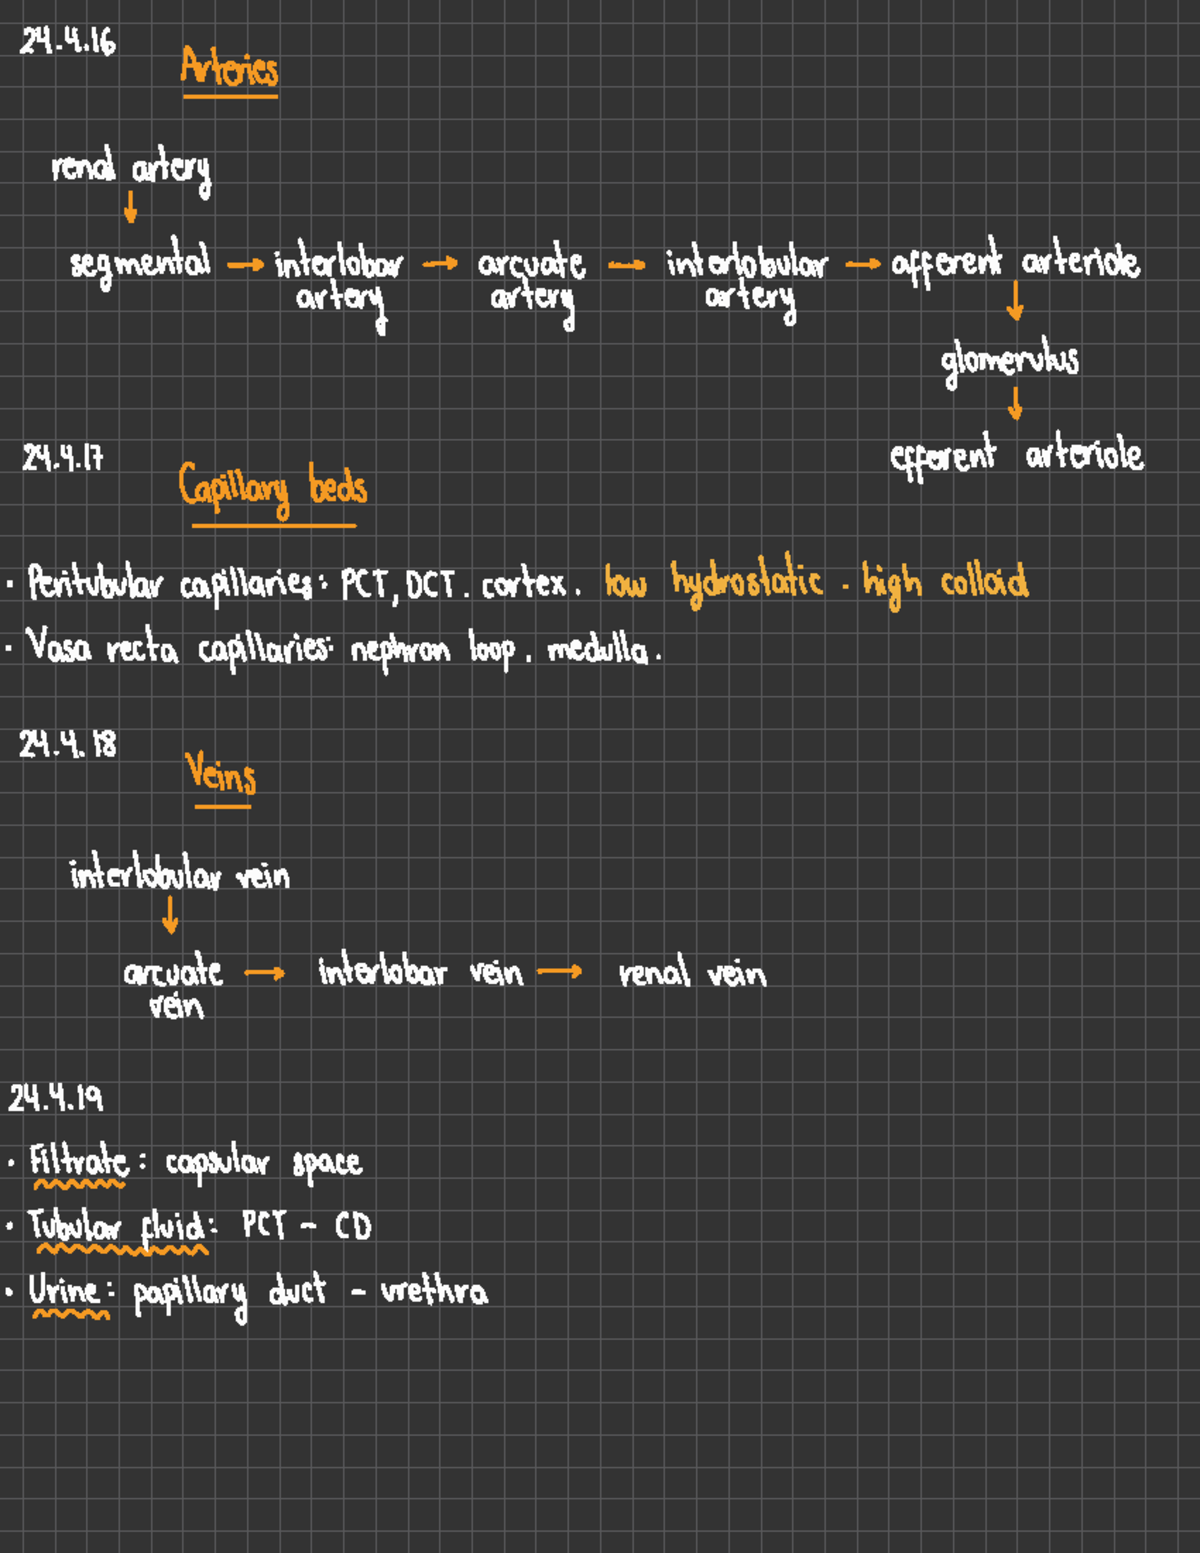 24.4.16
Arteries
renal artery
↓
segmental → interlobar → arcuate → interlobular → afferent arteriole
artery artery artery
↓
glomerulus
↓
efferent arteriole
24.4.17
Capillary beds
· Peritubular capillaries: PCT, DCT. cortex. low hydrostatic - high colloid
· Vasa recta capillaries: nephron loop. medulla.
24.4.18
Veins
interlobular vein
↓
arcuate → interlobar vein → renal vein
vein
24.4.19
· Filtrate: capsular space
· Tubular fluid: PCT - CD
· Urine: papillary duct - urethra